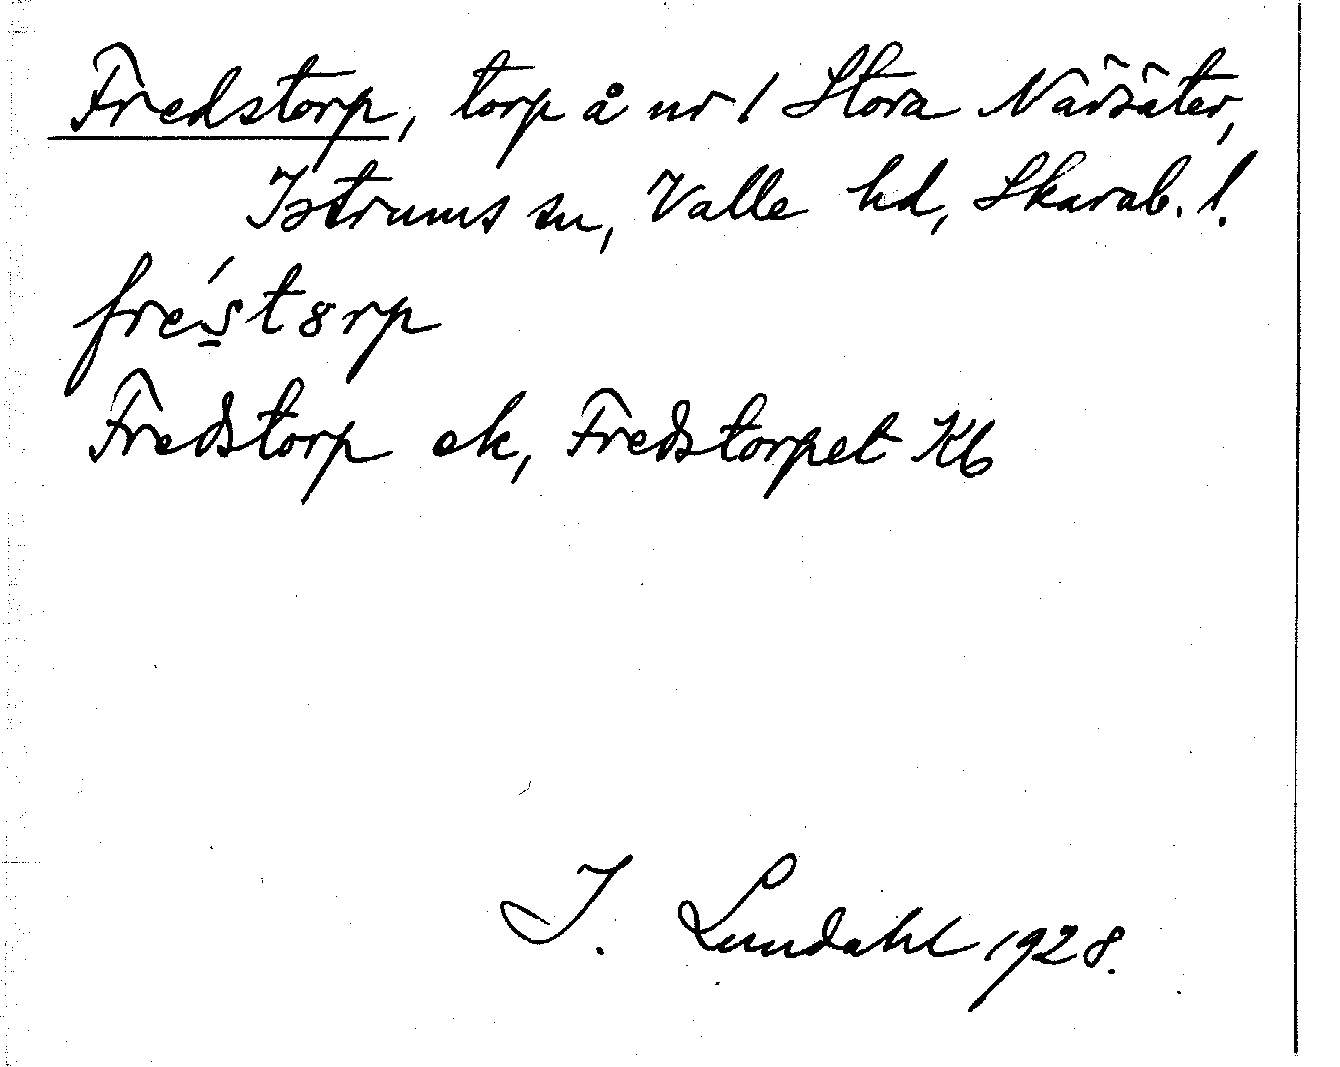 Fredstorp, torp å nr 1 Stora Närsäter,
Istrums sn, Valle hd, Skarab. l.
fre´s̱t8rp
Fredstorp ek, Fredstorpet Kb
I. Lundahl 1928.